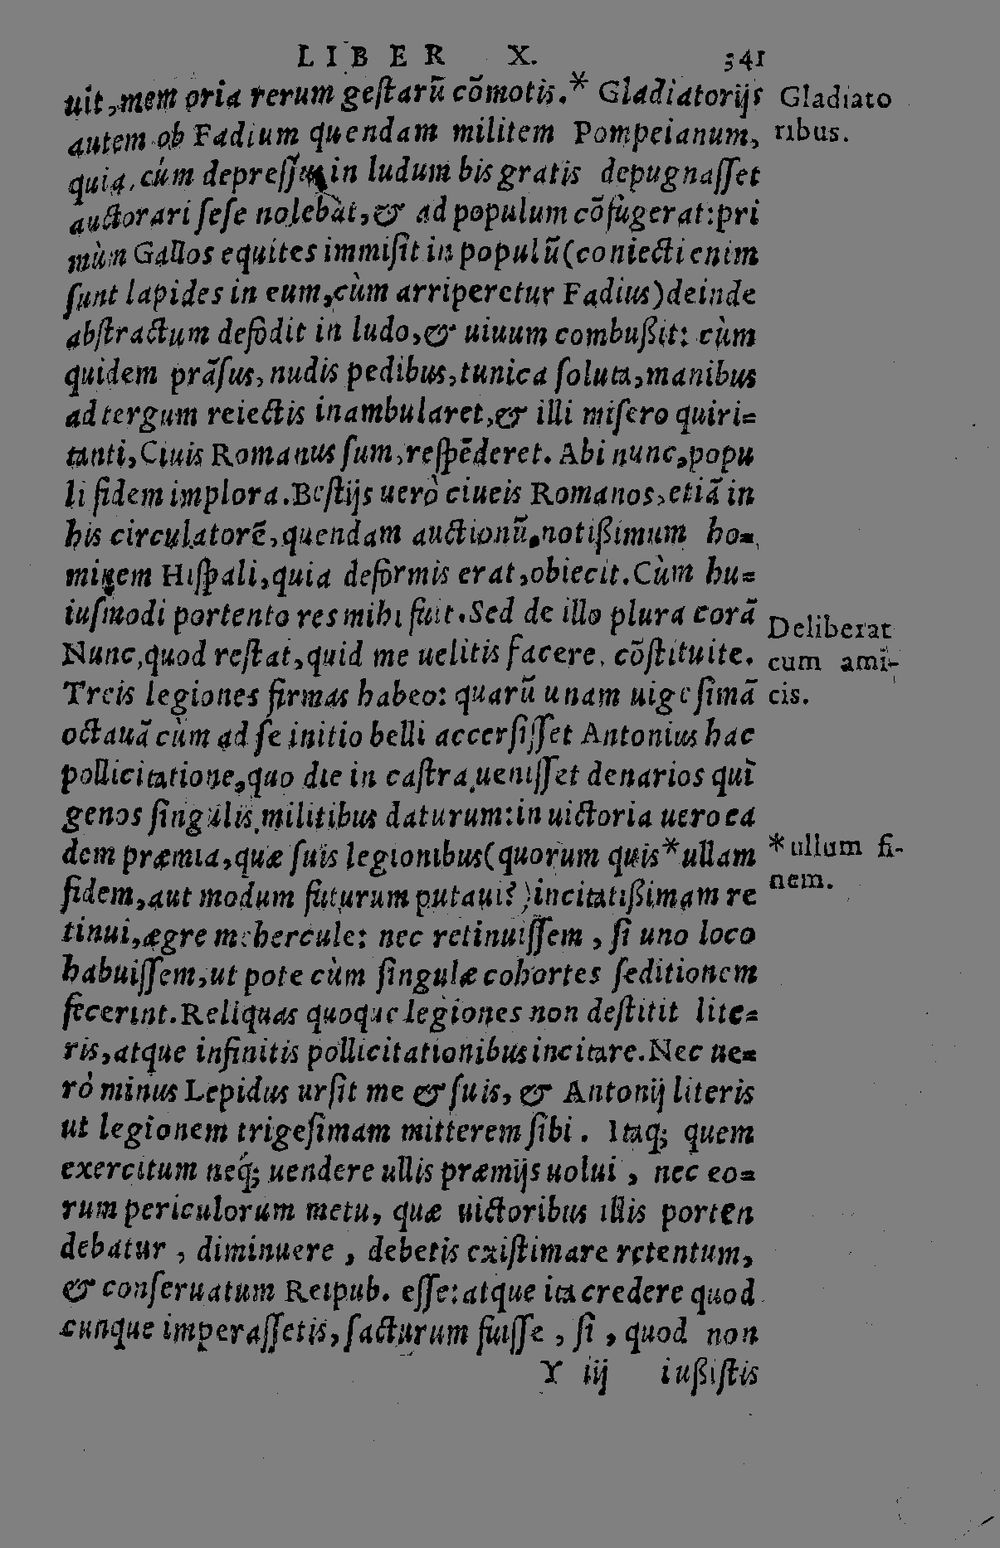 LIBER X. 341
uit, memoria rerum gestarū cōmotis.* Gladiatorijs
autem ob Fadium quendam militem Pompeianum,
quia, cúm depressus in ludum bis gratis depugnasset
auctorari sese nolebàt, & ad populum cōfugerat: pri
mùm Gallos equites immisit in populū (coniecti enim
sunt lapides in eum, cùm arriperetur Fadius) deinde
abstractum defodit in ludo, & uiuum combußit: cùm
quidem prāsus, nudis pedibus, tunica soluta, manibus
ad tergum reiectis inambularet, & illi misero quiri=
tanti, Ciuis Romanus sum, respēderet. Abi nunc, popu
li fidem implora. Bestijs uerò ciueis Romanos, etiā in
his circulatorē, quendam auctionū, notißimum ho=
minem Hispali, quia deformis erat, obiecit. Cùm hu=
iusmodi portento res mihi fuit. Sed de illo plura corā
Nunc, quod restat, quid me uelitis facere, cōstituite.
Treis legiones firmas habeo: quarū unam uigesimā
octauā cùm ad se initio belli accersisset Antonius hac
pollicitatione, quo die in castra uenisset denarios quī
genos singulis militibus daturum: in uictoria uero ea
dem præmia, quæ suis legionibus (quorum quis * ullam
fidem, aut modum futurum putauit?) incitatißimam re
tinui, ægre mehercule: nec retinuissem, si uno loco
habuissem, ut pote cùm singulæ cohortes seditionem
fecerint. Reliquas quoque legiones non destitit lite=
ris, atque infinitis pollicitationibus incitare. Nec ue=
rò minus Lepidus ursit me & suis, & Antonij literis
ut legionem trigesimam mitterem sibi. Itaq; quem
exercitum neq́; uendere ullis præmijs uolui, nec eo=
rum periculorum metu, quæ uictoribus illis porten
debatur, diminuere, debetis existimare retentum,
& conseruatum Reipub. esse: atque ita credere quod
cunque imperassetis, facturum fuisse, si, quod non
Y iij iußistis
Gladiato
ribus.
Deliberat
cum ami-
cis.
* ullum fi-
nem.